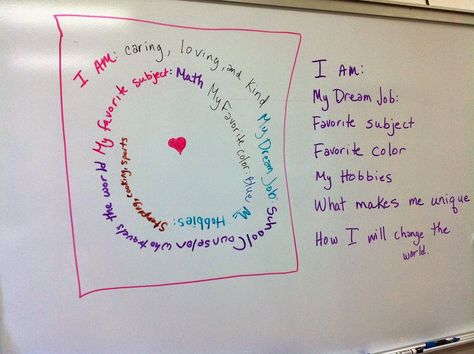 I Am: caring, loving, and kind
My Dream Job: School Counselor who travels the world
My favorite subject: Math
My Favorite color: blue
My Hobbies: Shopping, cooking, sports
I Am:
My Dream Job:
Favorite subject
Favorite color
My Hobbies
What makes me unique
How I will change the
world.